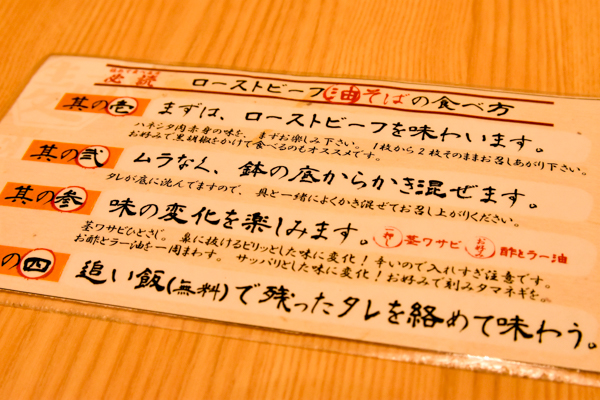 必読
ローストビーフ油そばの食べ方
其の壱 まずは、ローストビーフを味わいます。
ハネシタ肉赤身の味を、まずお楽しみ下さい。1枚から2枚そのままお召しあがり下さい。
お好みで黒胡椒をかけて食べるのもオススメです。
其の弐 ムラなく、鉢の底からかき混ぜます。
タレが底に沈んでますので、具と一緒によくかき混ぜてお召し上がりください。
其の参 味の変化を楽しみます。 茎ワサビ お好み 酢とラー油
茎ワサビひとさじ。鼻に抜けるピリッとした味に変化!辛いので入れすぎ注意です。
お酢とラー油を一周まわす。サッパリとした味に変化!お好みで刻みタマネギを。
の四 追い飯(無料)で残ったタレを絡めて味わう。